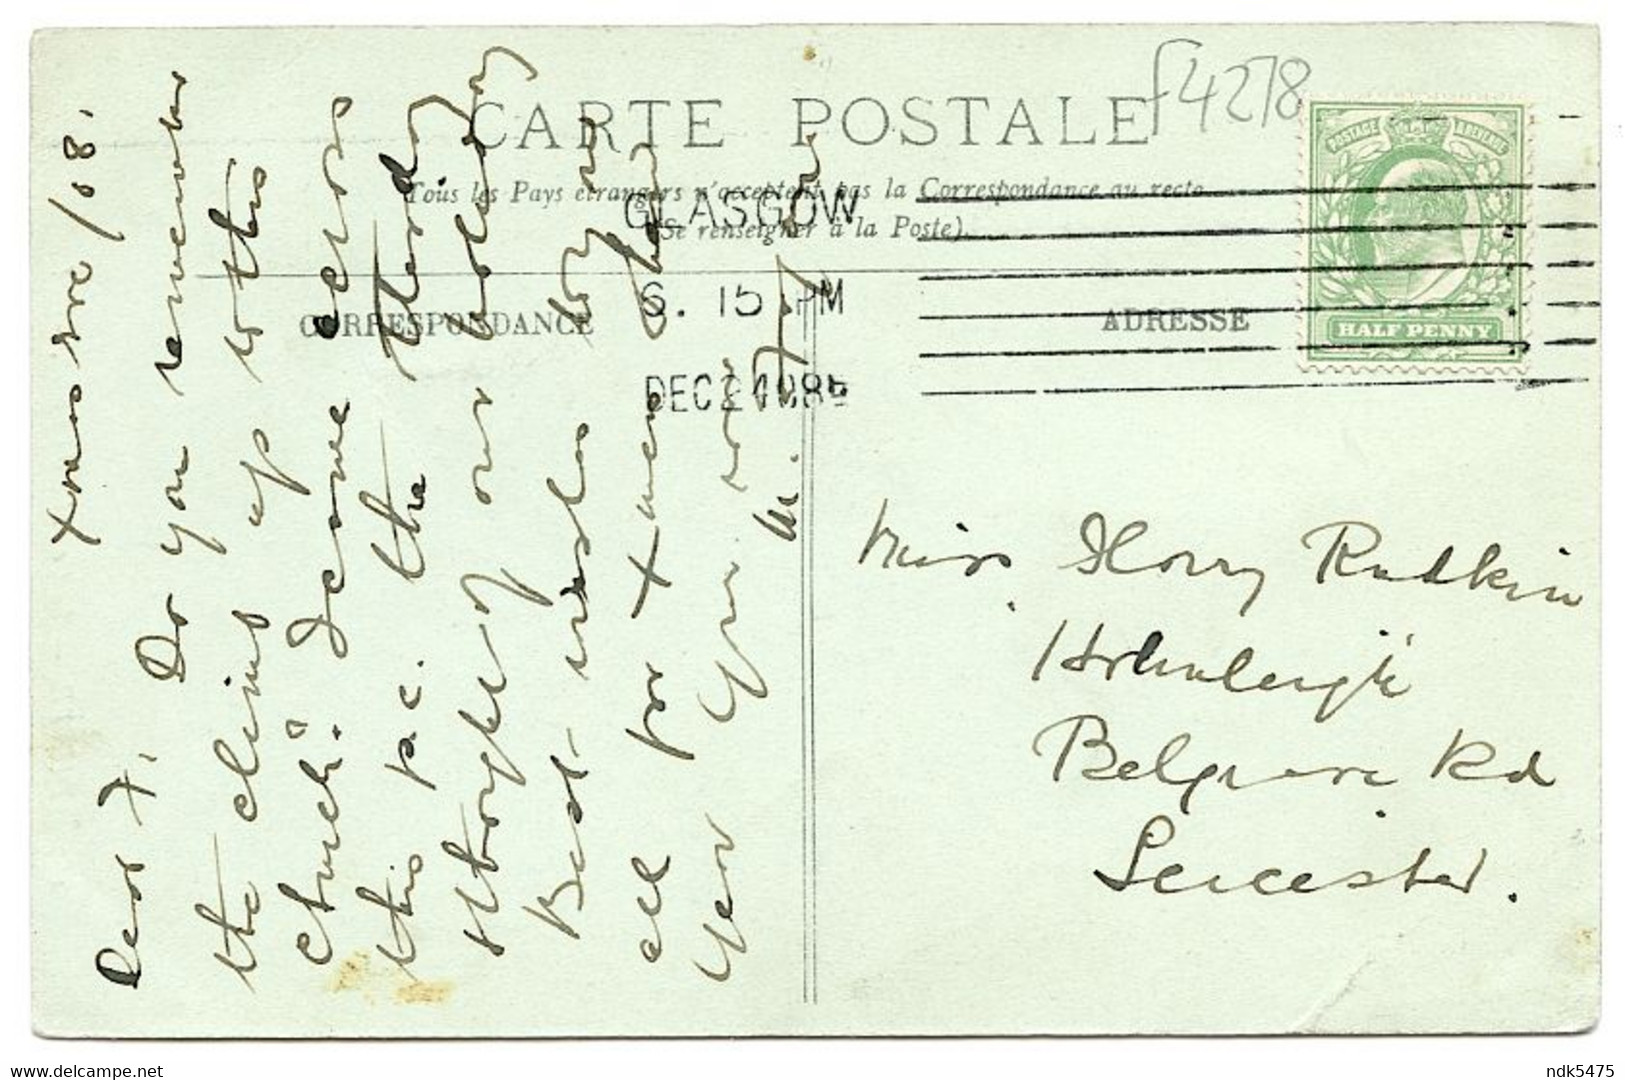 f4278
CARTE POSTALE
Tous les Pays étrangers n'acceptent pas la Correspondance au recto
(Se renseigner à la Poste).
GLASGOW
6. 15 PM
DEC 24 08
CORRESPONDANCE
ADRESSE
POSTAGE REVENUE
HALF PENNY
Xmas Eve /08.
Dear F. Do you remember
the climb up to this
church? I came across
this p.c. the other day
& thought of our holiday
Best wishes to you
all for Xmas & New
Year
Miss Florry Rudkin
Belgrave Rd
Leicester.
ndk5475